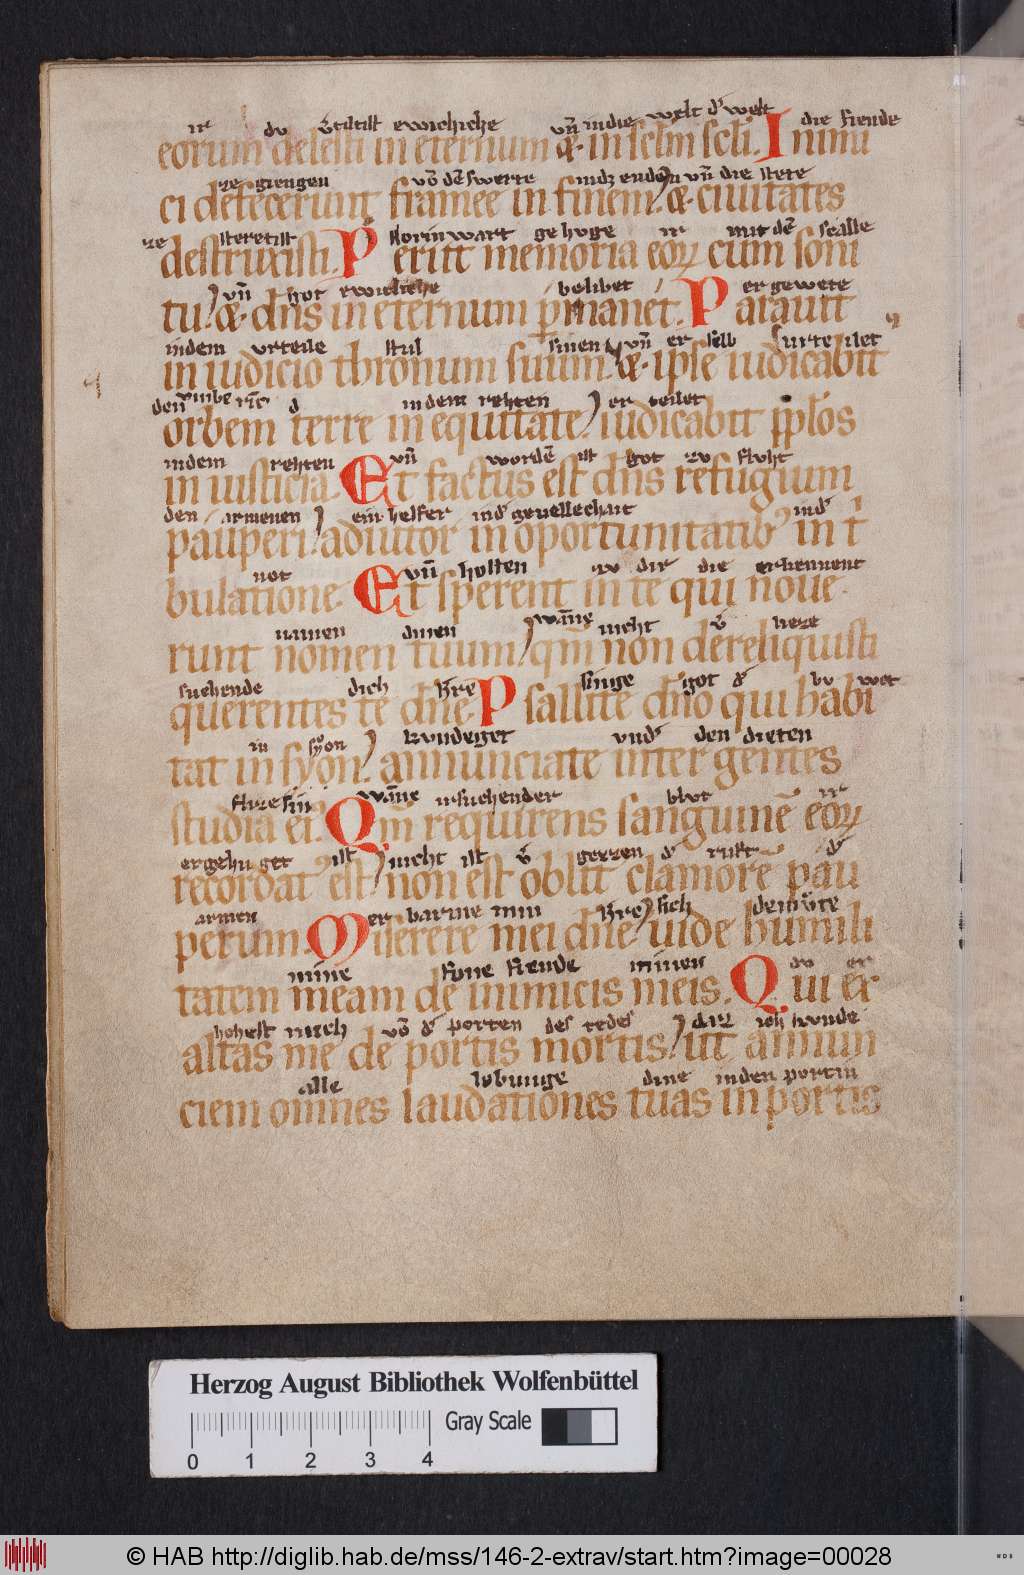 ir du v̄tiltilt ewichiche vn̄ indie welt d᷑ welt die fiende
eorum delesti in eternum & in sc̄lm scl̄i. Inimi
ze giengen vō dē swerte indz enden vn̄ die stete
ci defecerunt framee in finem & ciuitates
ze steretist uorinwart gehuge ir mit dē scalle
destruxisti. Periit memoria eoꝝ cum soni
vn̄ got ewicliche bolibet er gewete
tu & dn̄s in eternum p̄manet. Parauit
indem vrteile stul sinen vn̄ er selb urteilet
in iudicio thronum suum & ipse iudicabit
den vmbe rinc d indem rehten er teilet
orbem terre in equitate iudicabit pp̄los
indem rehten vn̄ wordē ist got zu fluht
in iusticia. Et factus est dn̄s refugium
den armenen ein helfer ind᷑ geuellechait ind᷑
pauperi adiutor in oportunitatib; in t̄
not vn̄ hoffen ze dir die erkennent
bulatione. Et sperent in te qui noue
namen dinen wāne nicht v̄ lieze
runt nomen tuum qm̄ non dereliquisti
suchende dich h̄re singe got d᷑ bu wet
querentes te dn̄e. Psallite dn̄o qui habi
in syon kundeget vnd᷑ den dieten
tat in syon annunciate inter gentes
flize sin wāne irsuchender blut ir
studia ei᷒. Qm̄ requirens sanguinē eoꝝ
er gehuget ist nicht ist v̄ gezzen d᷑ ruft d᷑
recordat᷒ est non est oblit᷒ clamorē pau
armen er barme min h̄re sich demv̊te
perum. Miserere mei dn̄e uide humili
mine fone fiende minen du er
tatem meam de inimicis meis. Qui ex
hohest mich vō d᷑ porten des todes daz ich kunde
altas me de portis mortis ut annun
alle lobunge dine inden portin
ciem omnes laudationes tuas in portis
Herzog August Bibliothek Wolfenbüttel
Gray Scale
0 1 2 3 4
© HAB http://diglib.hab.de/mss/146-2-extrav/start.htm?image=00028